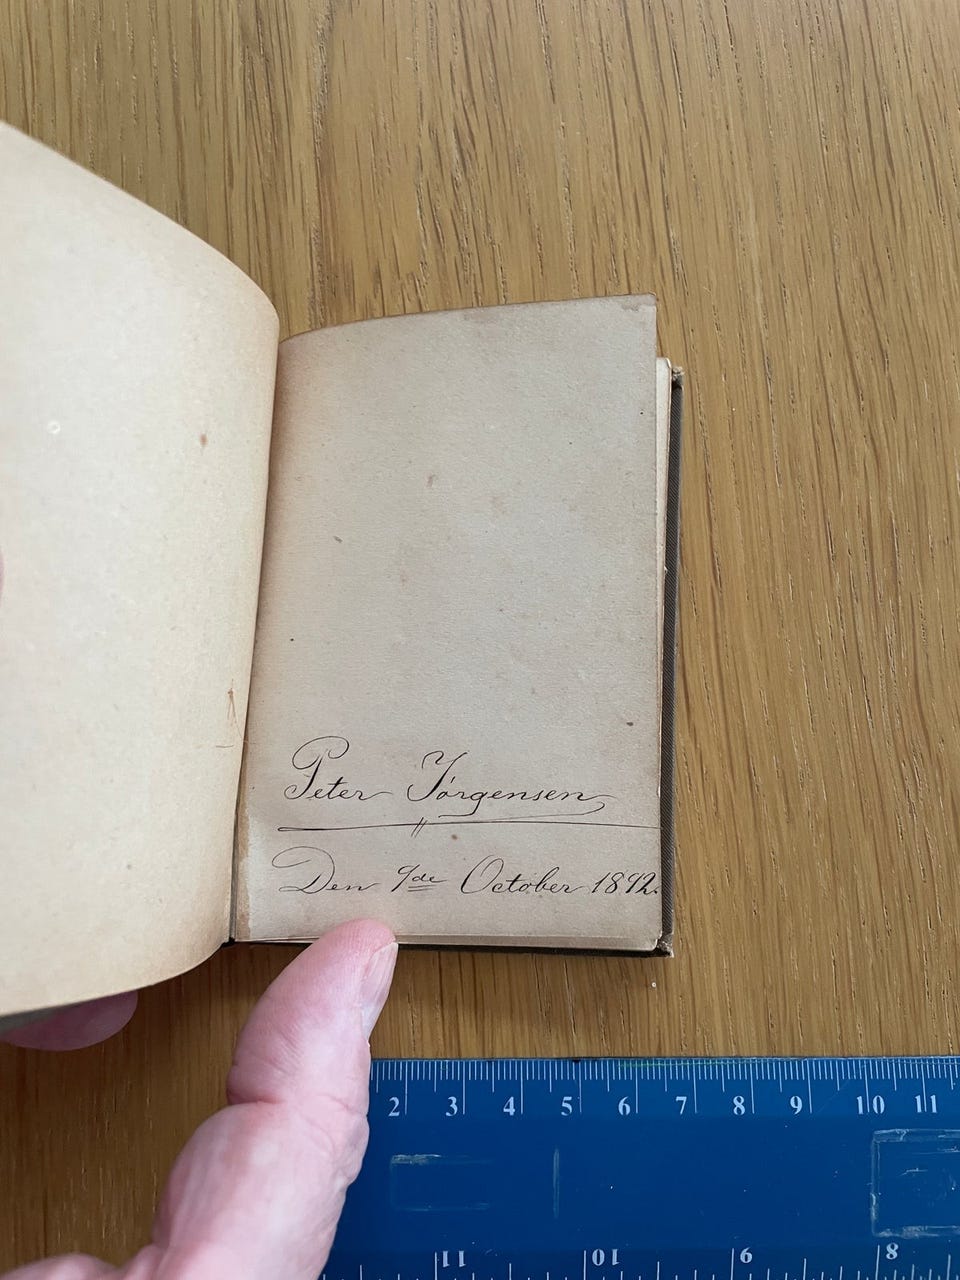 Peter Jórgensen
Den 9de October 1892.
2 3 4 5 6 7 8 9 10 11
11 10 9 8